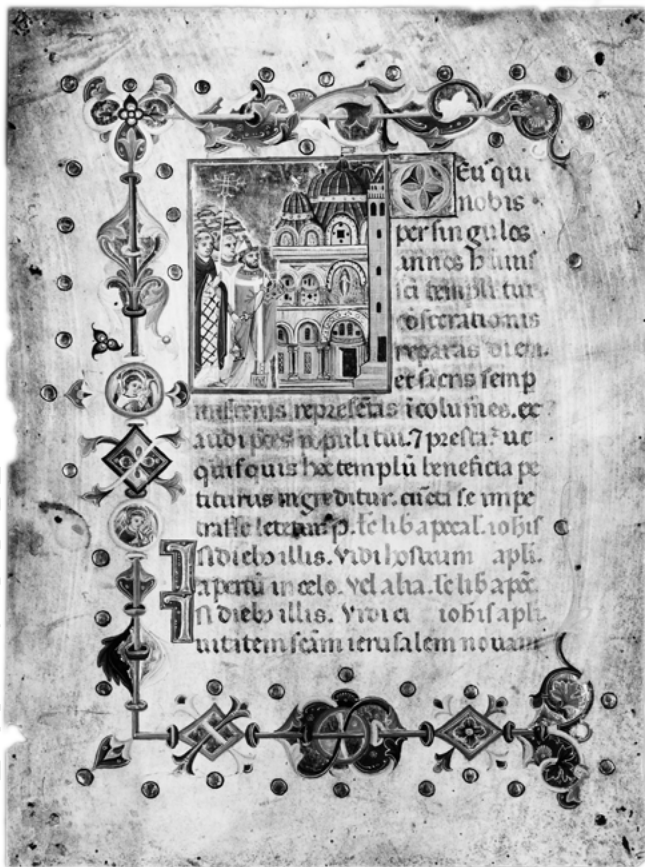 Eus qui
nobis
per singulos
annos huius
sci templi tui
cōsecrationis
reparas diem.
et sacris semp
misteriis represētas īcolumes. ex
audi p̄ces populi tui. ⁊ presta. ut
quisquis hoc templū beneficia pe
titurus ingreditur. cūcta se impe
trasse letetur. P. l̄c lib apocal. iohis
In diebꝫ illis. Vidi hostium apli.
apertū in celo. Vel alia. l̄c lib apoc̄.
In diebꝫ illis. Vidi ci iohis apli.
uitatem scām ierusalem nouam